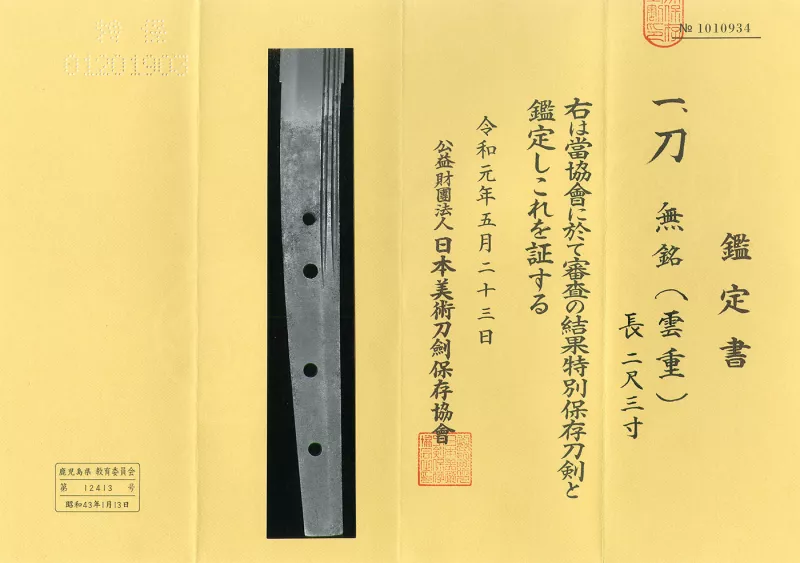 № 1010934
鑑定書
一、刀 無銘(雲重)
長二尺三寸
右は當協會に於て審査の結果特別保存刀剣と
鑑定しこれを証する
令和元年五月二十三日
公益財團法人日本美術刀劍保存協會
01201903
鹿児島県 教育委員会
第 12413 号
昭和43年1月13日